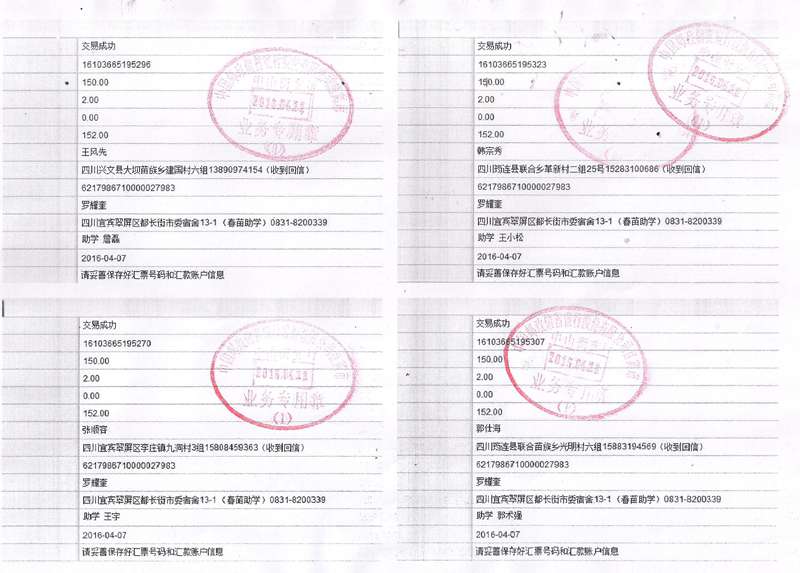 交易成功
16103665195296
150.00
2.00
0.00
152.00
王风先
四川兴文县大坝苗族乡建国村六组13890974154（收到回信）
6217986710000027983
罗耀奎
四川宜宾翠屏区都长街市委宿舍13-1（春苗助学）0831-8200339
助学 詹磊
2016-04-07
请妥善保存好汇票号码和汇款账户信息
业务专用章
(1)
交易成功
16103665195323
150.00
2.00
0.00
152.00
韩宗秀
四川筠连县联合乡革新村二组25号15283100686（收到回信）
6217986710000027983
罗耀奎
四川宜宾翠屏区都长街市委宿舍13-1（春苗助学）0831-8200339
助学 王小松
2016-04-07
请妥善保存好汇票号码和汇款账户信息
业务
业务专用章
交易成功
16103665195270
150.00
2.00
0.00
152.00
张顺容
四川宜宾翠屏区李庄镇九洞村3组15808459363（收到回信）
6217986710000027983
罗耀奎
四川宜宾翠屏区都长街市委宿舍13-1（春苗助学）0831-8200339
助学 王宇
2016-04-07
请妥善保存好汇票号码和汇款账户信息
业务专用章
(1)
交易成功
16103665195307
150.00
2.00
0.00
152.00
郭仕海
四川筠连县联合苗族乡光明村六组15883194569（收到回信）
6217986710000027983
罗耀奎
四川宜宾翠屏区都长街市委宿舍13-1（春苗助学）0831-8200339
助学 郭术强
2016-04-07
请妥善保存好汇票号码和汇款账户信息
业务专用章
(1)